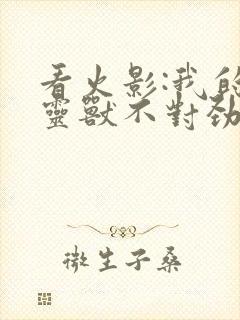 看火影:我的
靈獸不對勁
微生子桑